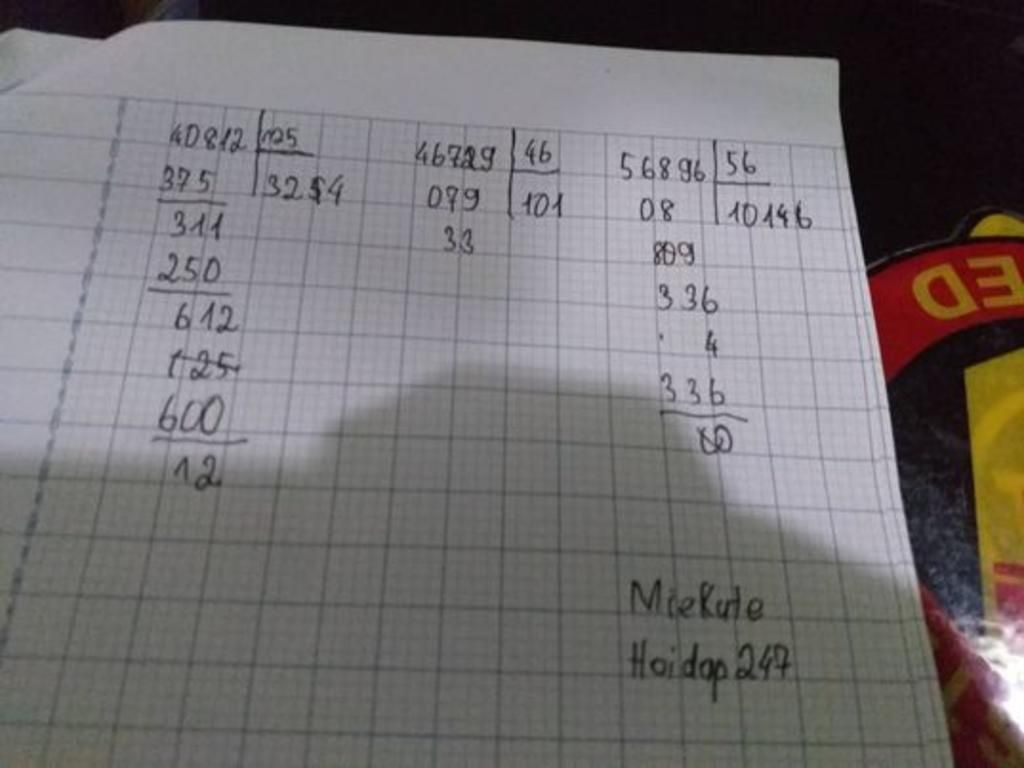 40812 125
375 3254
311
250
612
125
600
12
46729 46
079 101
33
56896 56
08 10146
809
336
4
336
00
MieKute
Hoidap247
ED